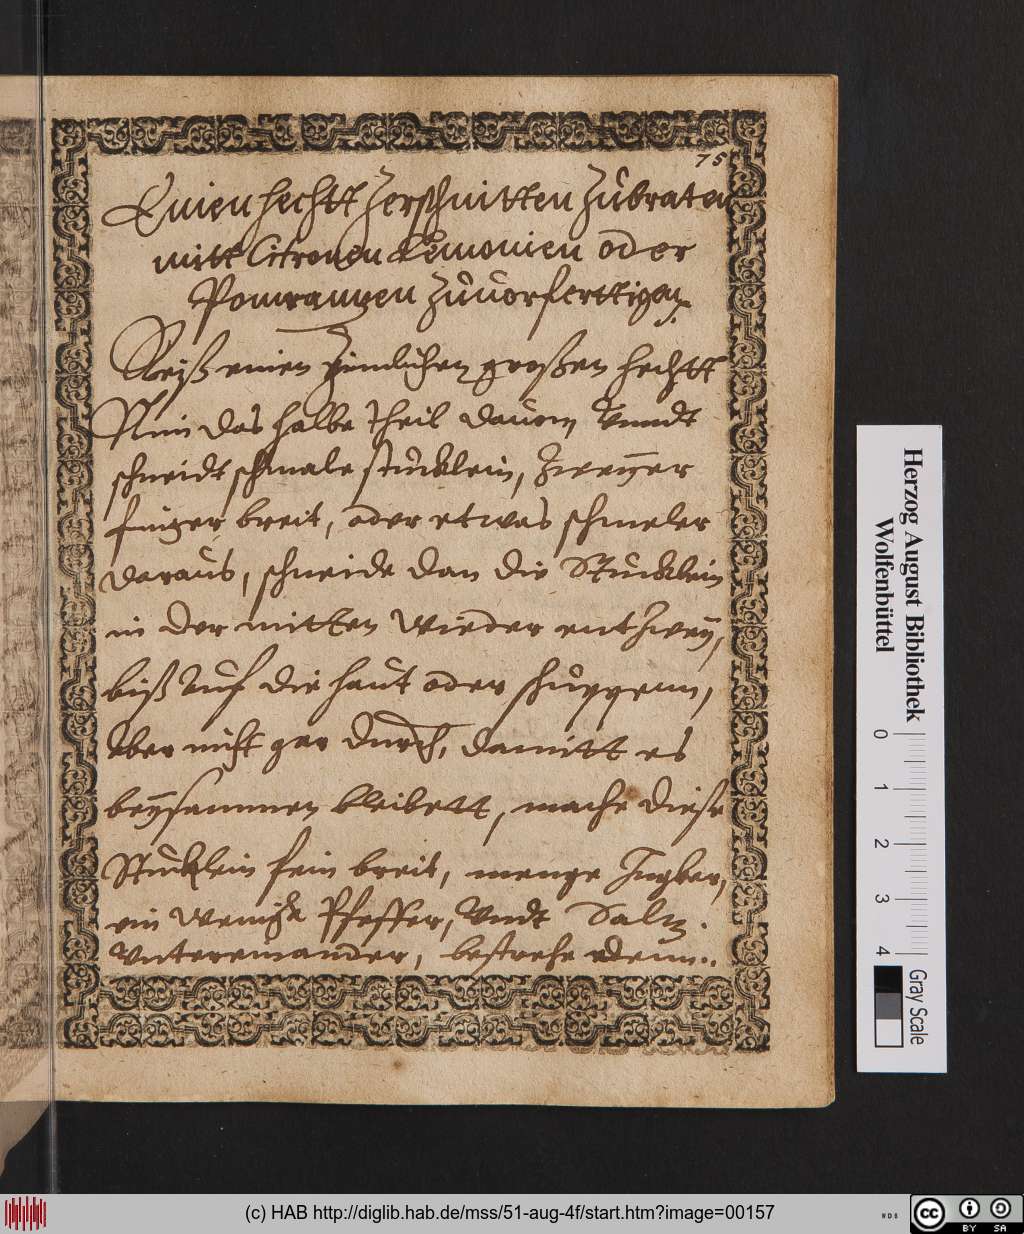 75
Einen hechtt Zerschnitten Zubraten
mitt Citronen Lemonien oder
Pomrantzen Zuuorferttigen.
Reiß einen zimlichen großen hechtt
Nim das halbe theil dauon Vnndt
schneidt schmale stücklein, Zweÿer
finger breit, oder etwas schmeler
daraus, schneide dan die Stücklein
in der mitten wieder entzweÿ,
biß auf die haut oder schuppenn,
Aber nicht gar durch, damitt es
beÿsammen bleibett, mache diese
Stücklein fein breit, menge Ingber,
ein wenigk Pfeffer, Vndt Saltz.
Vntereinander, bestrehe
Herzog August Bibliothek
Wolfenbüttel
0 1 2 3 4
Gray Scale
(c) HAB http://diglib.hab.de/mss/51-aug-4f/start.htm?image=00157
WDB
cc BY SA